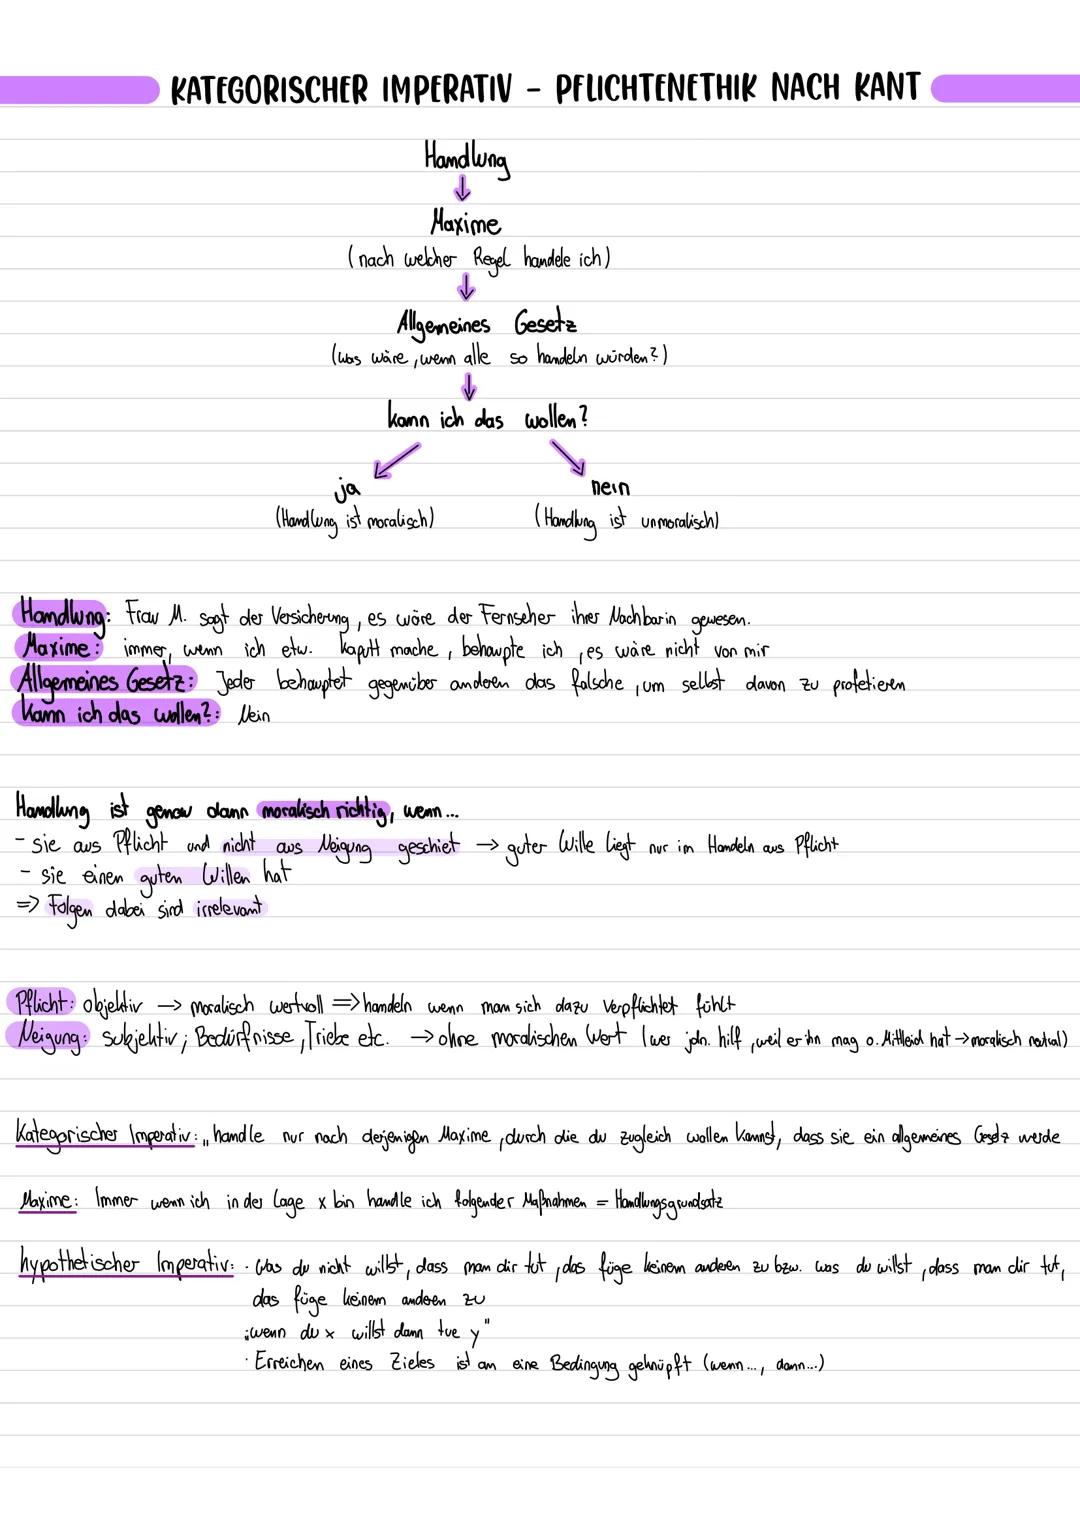 KATEGORISCHER IMPERATIV - PFLICHTENETHIK NACH KANT
Handlung
↓
Maxime
(nach welcher Regel handele ich)
↓
Allgemeines Gesetz
(was wäre, wenn alle so handeln würden?)
↓
kann ich das wollen?
ja nein
(Handlung ist moralisch) (Handlung ist unmoralisch)
Handlung: Frau M. sagt der Versicherung, es wäre der Fernseher ihrer Nachbarin gewesen.
Maxime: immer, wenn ich etw. kaputt mache, behaupte ich, es wäre nicht von mir
Allgemeines Gesetz: Jeder behauptet gegenüber anderen das falsche, um selbst davon zu profetieren
Kann ich das wollen?: Nein
Handlung ist genau dann moralisch richtig, wenn...
- sie aus Pflicht und nicht aus Neigung geschiet → guter Wille liegt nur im Handeln aus Pflicht
- sie einen guten Willen hat
=> Folgen dabei sind irrelevant
Pflicht: objektiv → moralisch wertvoll => handeln wenn man sich dazu verpflichtet fühlt
Neigung: subjektiv; Bedürfnisse, Triebe etc. → ohne moralischen Wert (wer jdn. hilf, weil er ihn mag o. Mitleid hat → moralisch neutral)
Kategorischer Imperativ: „handle nur nach derjenigen Maxime, durch die du zugleich wollen kannst, dass sie ein allgemeines Gesetz werde
Maxime: Immer wenn ich in der Lage x bin handle ich folgender Maßnahmen = Handlungsgrundsatz
hypothetischer Imperativ: · Was du nicht willst, dass man dir tut, das füge keinem anderen zu bzw. was du willst, dass man dir tut,
das füge keinem anderen zu
„wenn du x willst dann tue y"
· Erreichen eines Zieles ist an eine Bedingung geknüpft (wenn..., dann...)